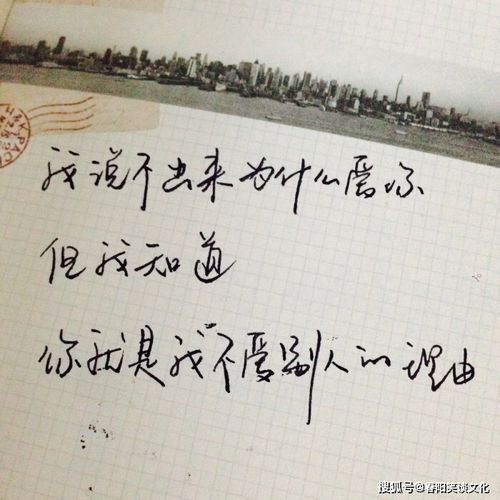 我说不出来为什么爱你
但我知道
你就是我不爱别人的理由
搜狐号@春阳笑谈文化